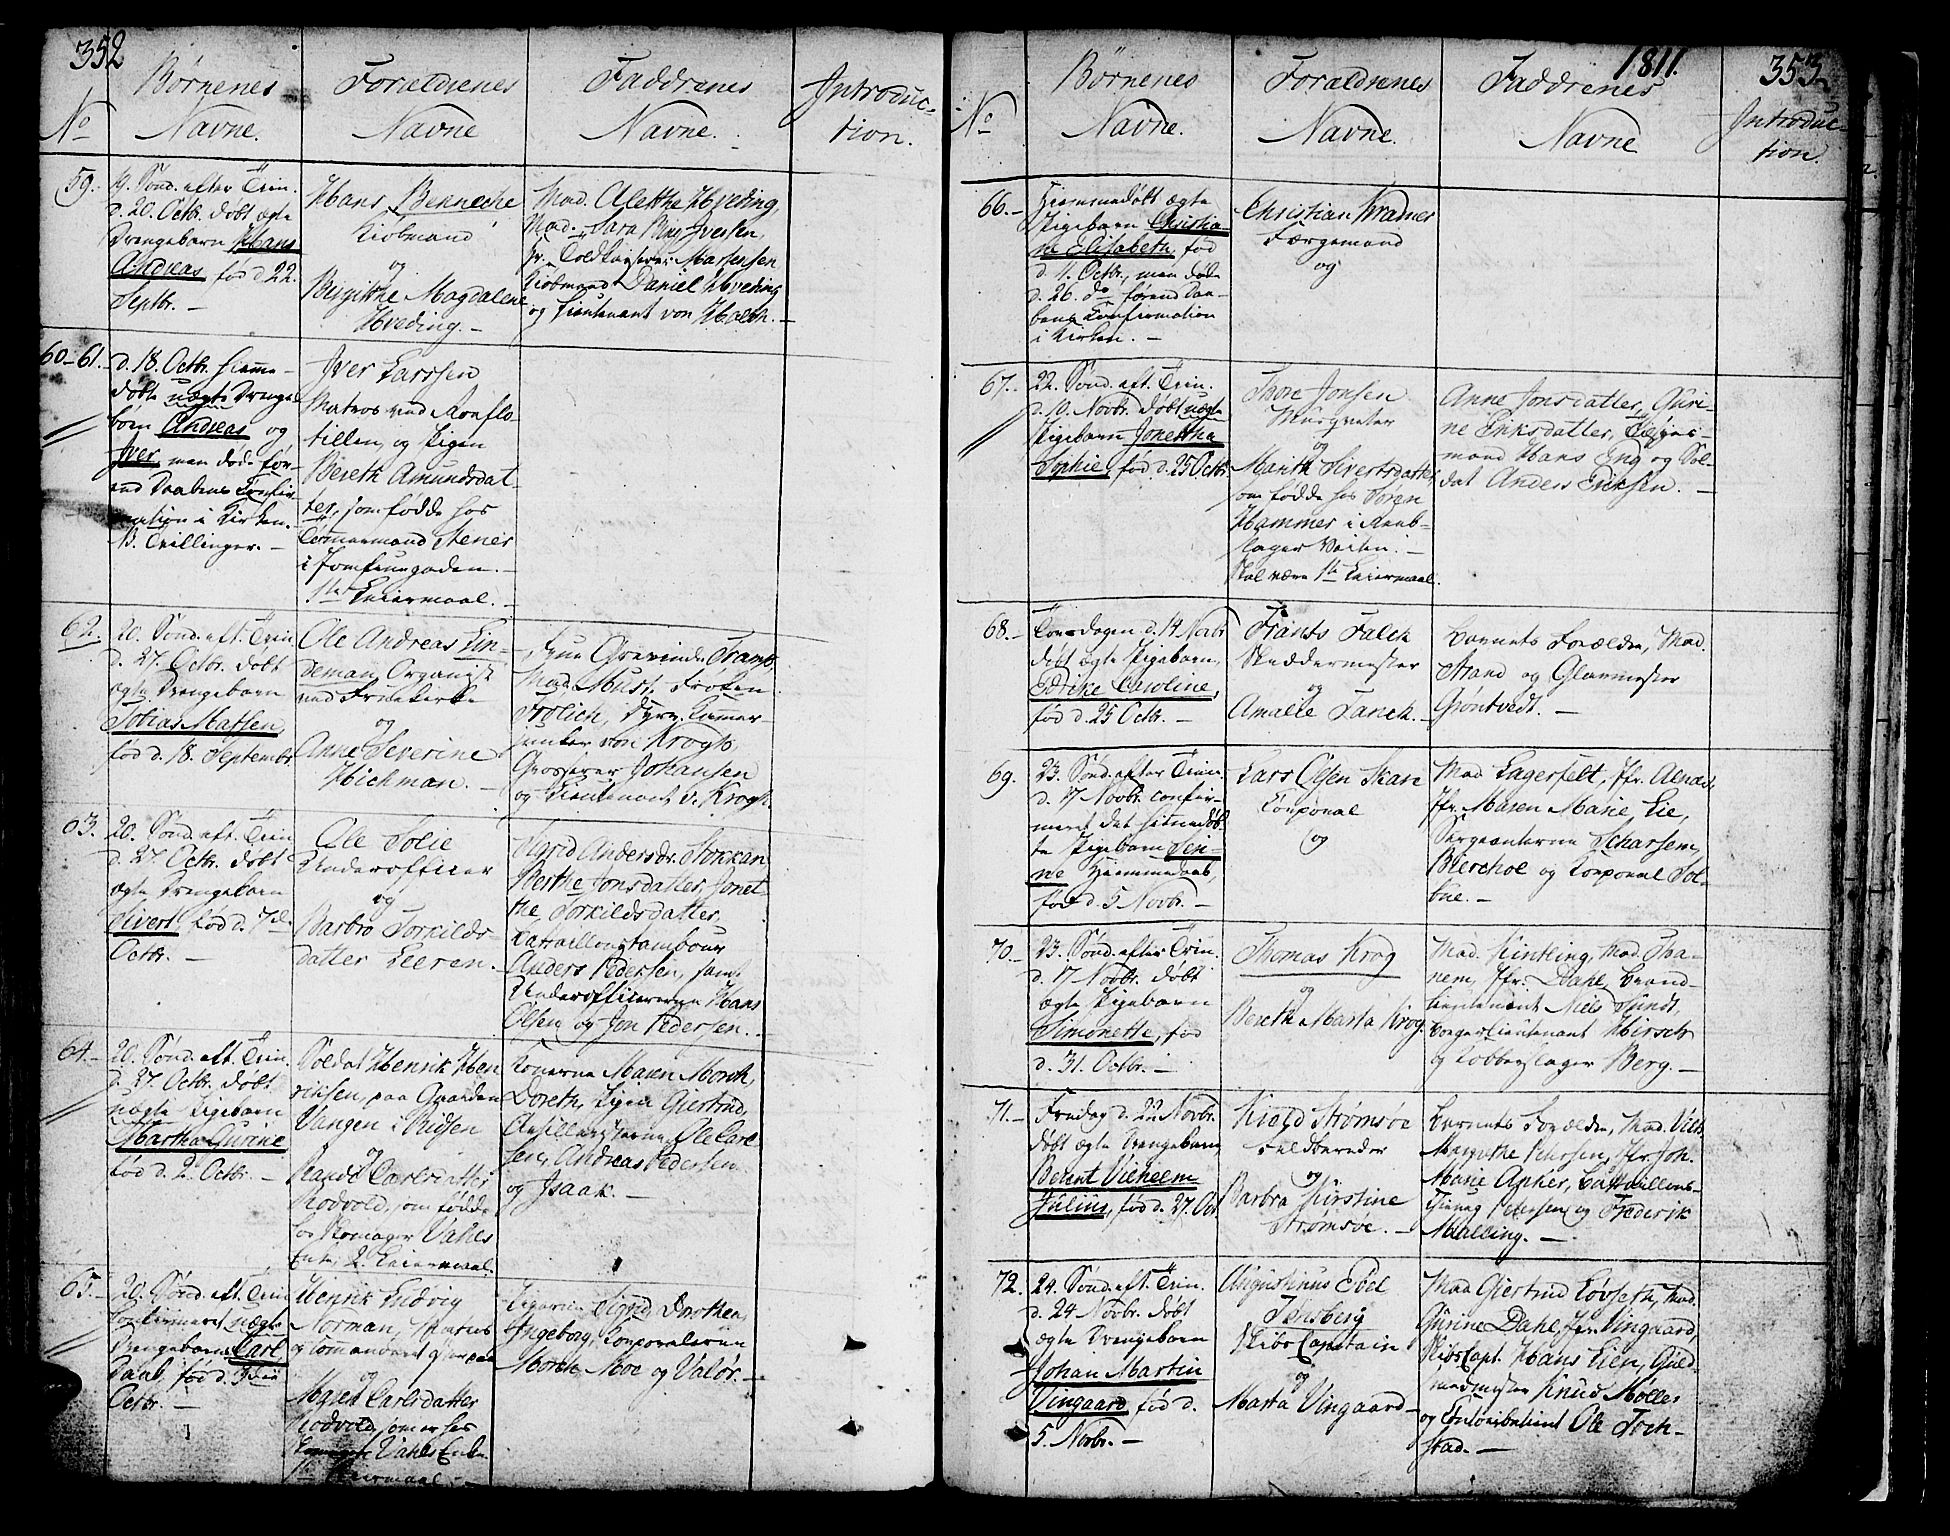 352
No
Börnenes
Navne.
Forældrenes
Navne
Faddrenes
Navne.
Introduc-
tion.
59.
19. Sönd. efter Trin.
d. 20. Octbr. döbt ægte
Drengebarn Hans
Andreas, föd d. 22.
Septbr. -
Hans Bennecke
Kiöbmand
og
Birgitthe Magdalene
Hveding. -
Mad. Alethe Hveding,
Mad. Sara Mar. Iversen,
Hr. Toldkasserer Marstensen
Kiöbmand Daniel Hveding
og Lieutenant von Holth. -
60-61.
d. 18. Octbr. hjemme-
döbte uægte Drenge-
börn Andreas og
Iver, men döde för-
end Daabens Confir-
mation i Kirken.
NB. Tvillinger. -
Iver Larssen
Matros ved Roeflo-
tillen, og Pigen
Bereth Amundsdat-
ter, som födde hos
Tömmermand Stener
i Jomfruegaden. -
1ste Leiermaal. -
62.
20. Sönd. eft. Trin.
d. 27. Octbr. döbt
ægte Drengebarn
Tobias Matsen,
föd d. 18. Septembr.
Ole Andreas Lin-
deman, Organist
ved Fruekirke
og
Anne Severine
Hickman. -
Frue Grevinde Tramp,
Mad. Must, Fröken
Frölich, Kammer-
junker von Krogh,
Grosserer Johansen
og Lieutenant v. Krogh.
63.
20. Sönd. eft. Trin.
d. 27. Octbr. döbt
ægte Drengebarn
Sivert, föd d. 7de
Octbr. -
Ole Solie
Underofficeer
og
Barbro Torkilds-
datter Leeren. -
Sigrid Andersdr. Stokkan
Berthe Jonsdatter, Jonet-
the Torkildsdatter,
Battaillonstambour
Anders Pedersen, samt
Underofficererne Hans
Olsen og Jon Pedersen. -
64.
20. Sönd. eft. Trin.
d. 27. Octbr. döbt
uægte Pigebarn
Martha Gurine
föd d. 2. Octbr. -
Soldat Henrik Hen-
riksen, paa Gaarden
Vangen i Rissen
og
Randi Carlsdatter
Rodvold, som födde
hos Skomager Vahls
Enke, 2. Leiermaal.
Konerne Maren Morch,
Doreth, Pigen Giertrud,
Artilleristerne Ole Carl-
sen, Andreas Pedersen
og Isaak. -
65.
20. Sönd. eft. Trin.
Confirmeret uægte
Drengebarn Carl
Paul, föd d. 3die
Octbr. -
Henrik Ludvig
Norman, Matros
og
Maren Carlsdatter
Rodvold, som er hos
Vahls Enke
1ste Leiermaal. -
Pigerne Sigrid
Ingeborg, Corporalerne
Morch, Moe og Valör. -
1811.
353
No
Börnenes
Navne.
Forældrenes
Navne.
Faddrenes
Navne
Introduc-
tion.
66. -
Hjemmedöbt ægte
Pigebarn Christia-
ne Elisabeth, föd
d. 11. Octbr., men döde
d. 26. do förend Daa-
bens Confirmation
i Kirken. -
Christian Kramer
Færgemand
og
67. -
22. Sönd. eft. Trin.
d. 10. Novbr. döbt uægte
Pigebarn Jonettha
Sophie, föd d. 25 Octbr.
Thore Jonsen
Musqveteer
og
Marith Sivertsdatter,
som födde hos Sören
Hammer i Reeb-
slager Veiten. -
Skal være 1ste Leiermaal.
Anne Jonsdatter, Guri-
ne Eriksdatter,
mand Hans Eng og Sol-
dat Anders Eriksen. -
68. -
Torsdagen d. 14 Novbr.
döbt ægte Pigebarn,
Edrike Caroline,
föd d. 25 Octbr. -
Frants Falck
Skreddermester
og
Amalie Lanck. -
Barnets Forældre, Mad.
Strand og Glarmester
Gröntvedt. -
69.
23. Sönd. efter Trin.
d. 17 Novbr. confir-
meret det hjemmedöb-
te Pigebarn Sen-
ne Hjemmedaab,
föd d. 5 Novbr. -
Lars Olsen Skar
Corporal
og
Mad Lagerfelt, Jfr. Alnæs,
Jfr. Maren Marie Lie,
Sergeanterne Scharsem,
Bierchoe og Corporal Sol-
bue. -
70. -
23. Sönd. efter Trin.
d. 17 Novbr. döbt
ægte Pigebarn
Simonette, föd
d. 31. Octbr. -
Thomas Krog
og
Bereth Marta Krog.
Mad. Hintling, Mad. Tha-
nem, Jfr. Dahl, Brand-
lieutenant Niels Sundt,
Borgerlieutenant Hirsch
og Kobberslager Berg. -
71. -
Fredag d. 22 Novbr.
döbt ægte Drengebarn,
Bernt Vilhelm
Julius, föd d. 27. Oct
Kield Strömsöe
Feldbereder
og
Barbra Kirstine
Strömsoe. -
Barnets Forældre, Mad. Vibe
Margrethe Petersen, Jfr. Joh.
Marie Apker, Battaillons-
chirurg Petersen og Frederik
Malling. -
72.
24. Sönd. eft. Trin.
d. 24 Novbr. döbt
ægte Drengebarn
Johan Martin
Vingaard, föd d.
5. Novbr. -
Augustinus Edel
Tonsberg
Skibs Capitain
og
Marta Vingaard -
Mad Giertrud Lövseth, Mad.
Gurine Dahl, Jfr. Vingaard,
Skibs Capt. Hans Lien, Guld-
smedmester Knud Möller
og Controlleur Ole Toch-
stad. -